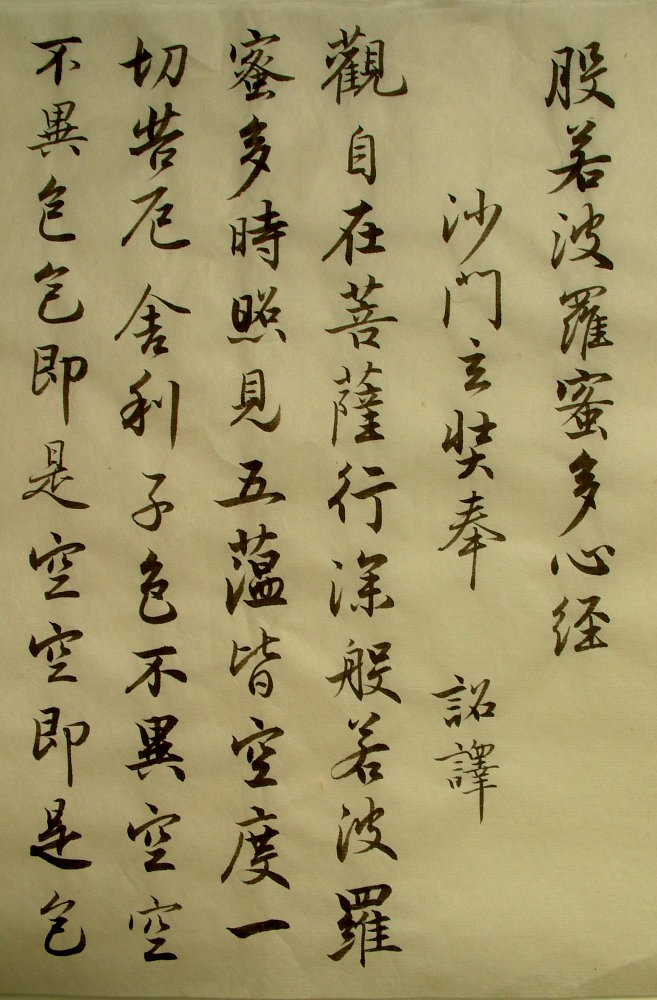 般若波羅蜜多心経
沙門玄奘奉 詔譯
觀自在菩薩行深般若波羅
蜜多時照見五蕴皆空度一
切苦厄舍利子色不異空空
不異色色即是空空即是色